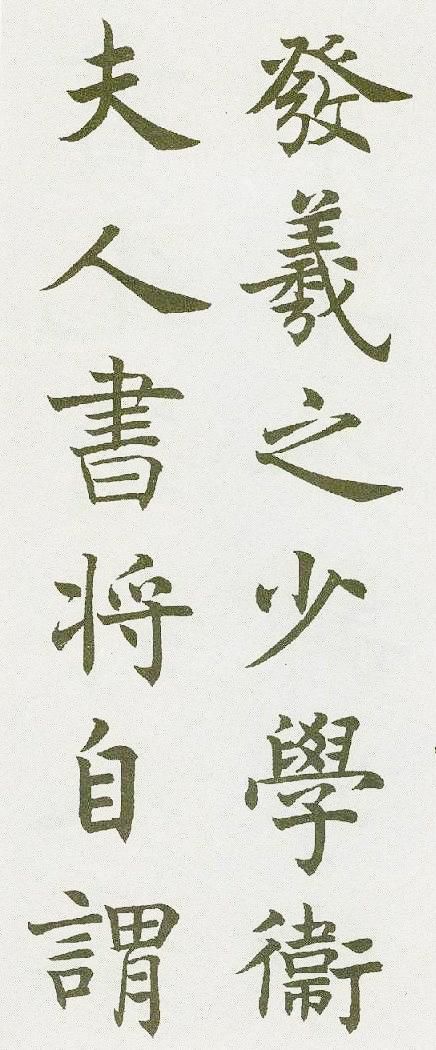 發羲之少學衞
夫人書将自謂